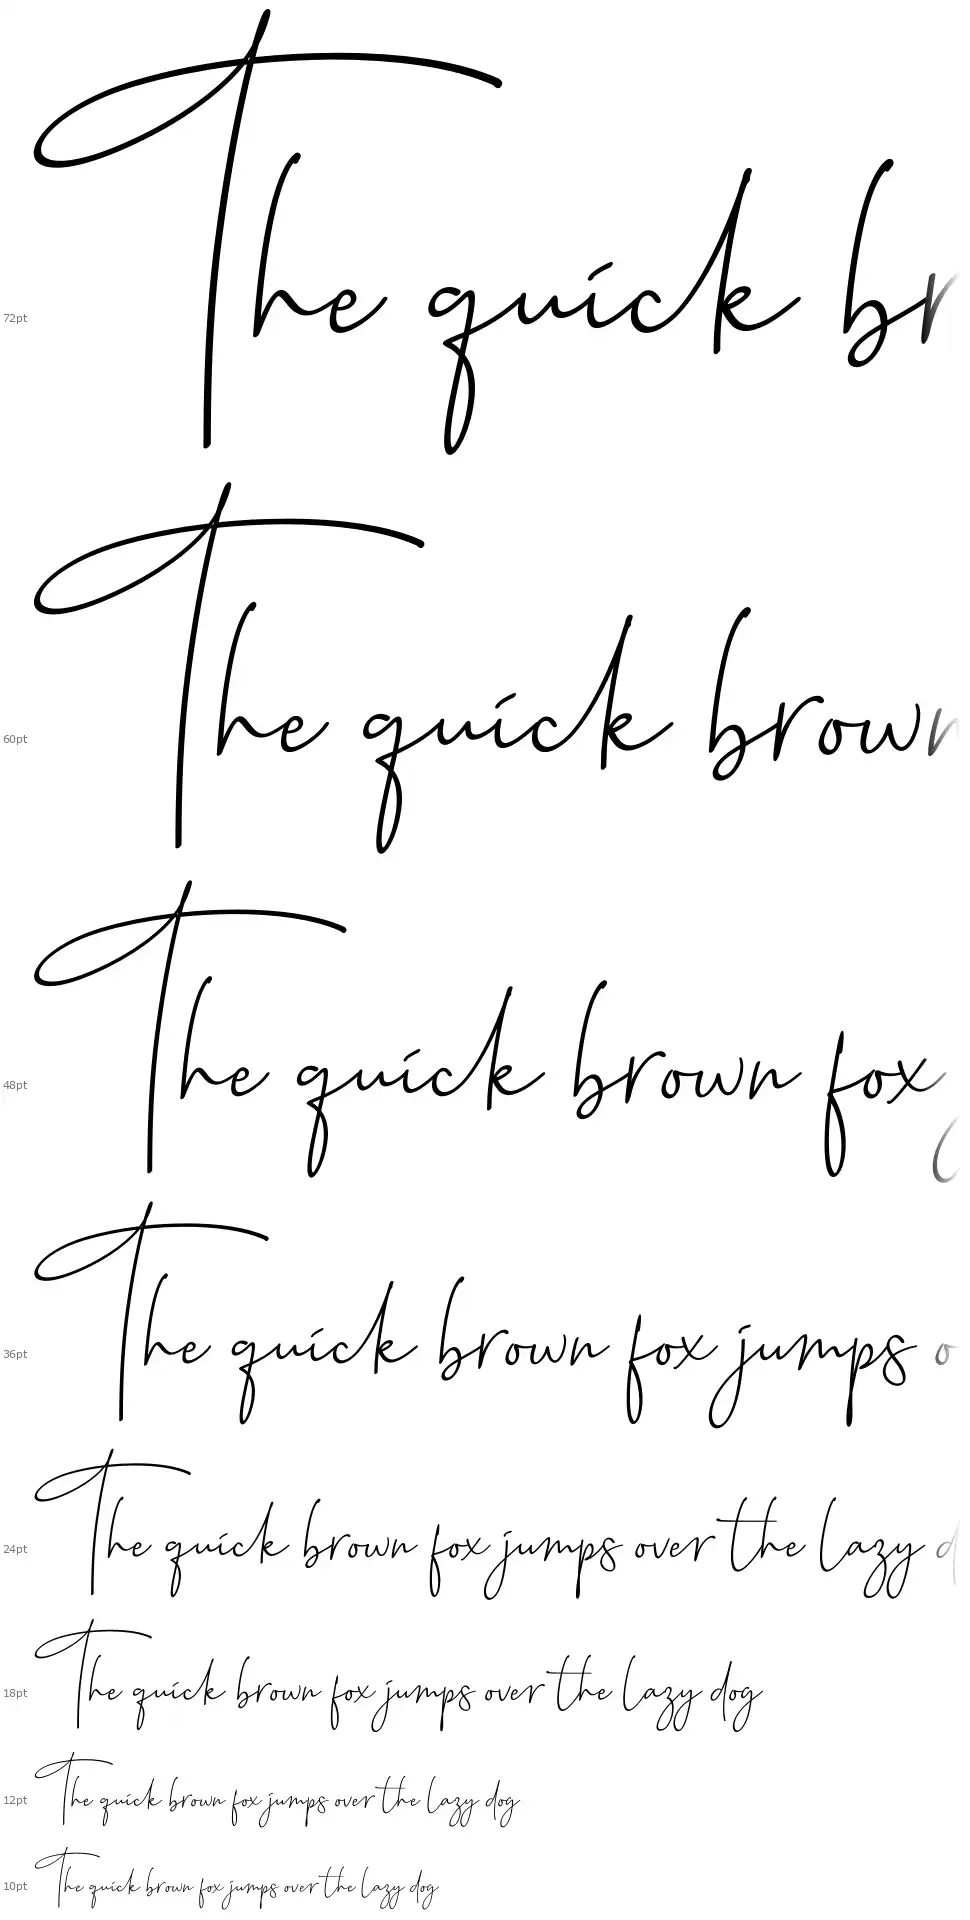 72pt The quick br
60pt The quick brown
48pt The quick brown fox
36pt The quick brown fox jumps o
24pt The quick brown fox jumps over the lazy d
18pt The quick brown fox jumps over the lazy dog
12pt The quick brown fox jumps over the lazy dog
10pt The quick brown fox jumps over the lazy dog